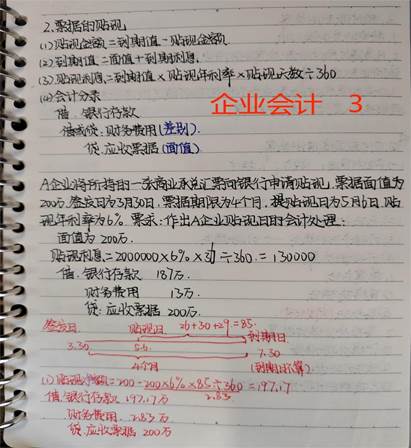 2.票据的贴现
(1)贴现金额=到期值-贴现金额
(2)到期值=面值+到期利息.
(3)贴现利息=到期值×贴现年利率×贴现天数÷360
(4)会计分录
企业会计 3
借:银行存款
借或贷:财务费用(差别).
贷:应收票据(面值)
A企业将所持有的一张商业承兑汇票向银行申请贴现,票据面值为
200万.签发日为3月30日,票据期限为4个月,提贴现日为5月6日,贴
现年利率为6%.要求:作出A企业贴现日的会计处理:
面值为200万.
贴现利息=2000000×6%×÷360=130000
借:银行存款 187万.
财务费用 13万.
贷:应收票据 200万.
签发日. 贴现日. 26+30+29=85.
到期日.
3.30 5.6. 7.30
4个月 (到期日不算).
(1)贴现=200-200×6%×85÷360=197.17
2.83
借:银行存款 197.17万
财务费用 2.83万
贷:应收票据 200万